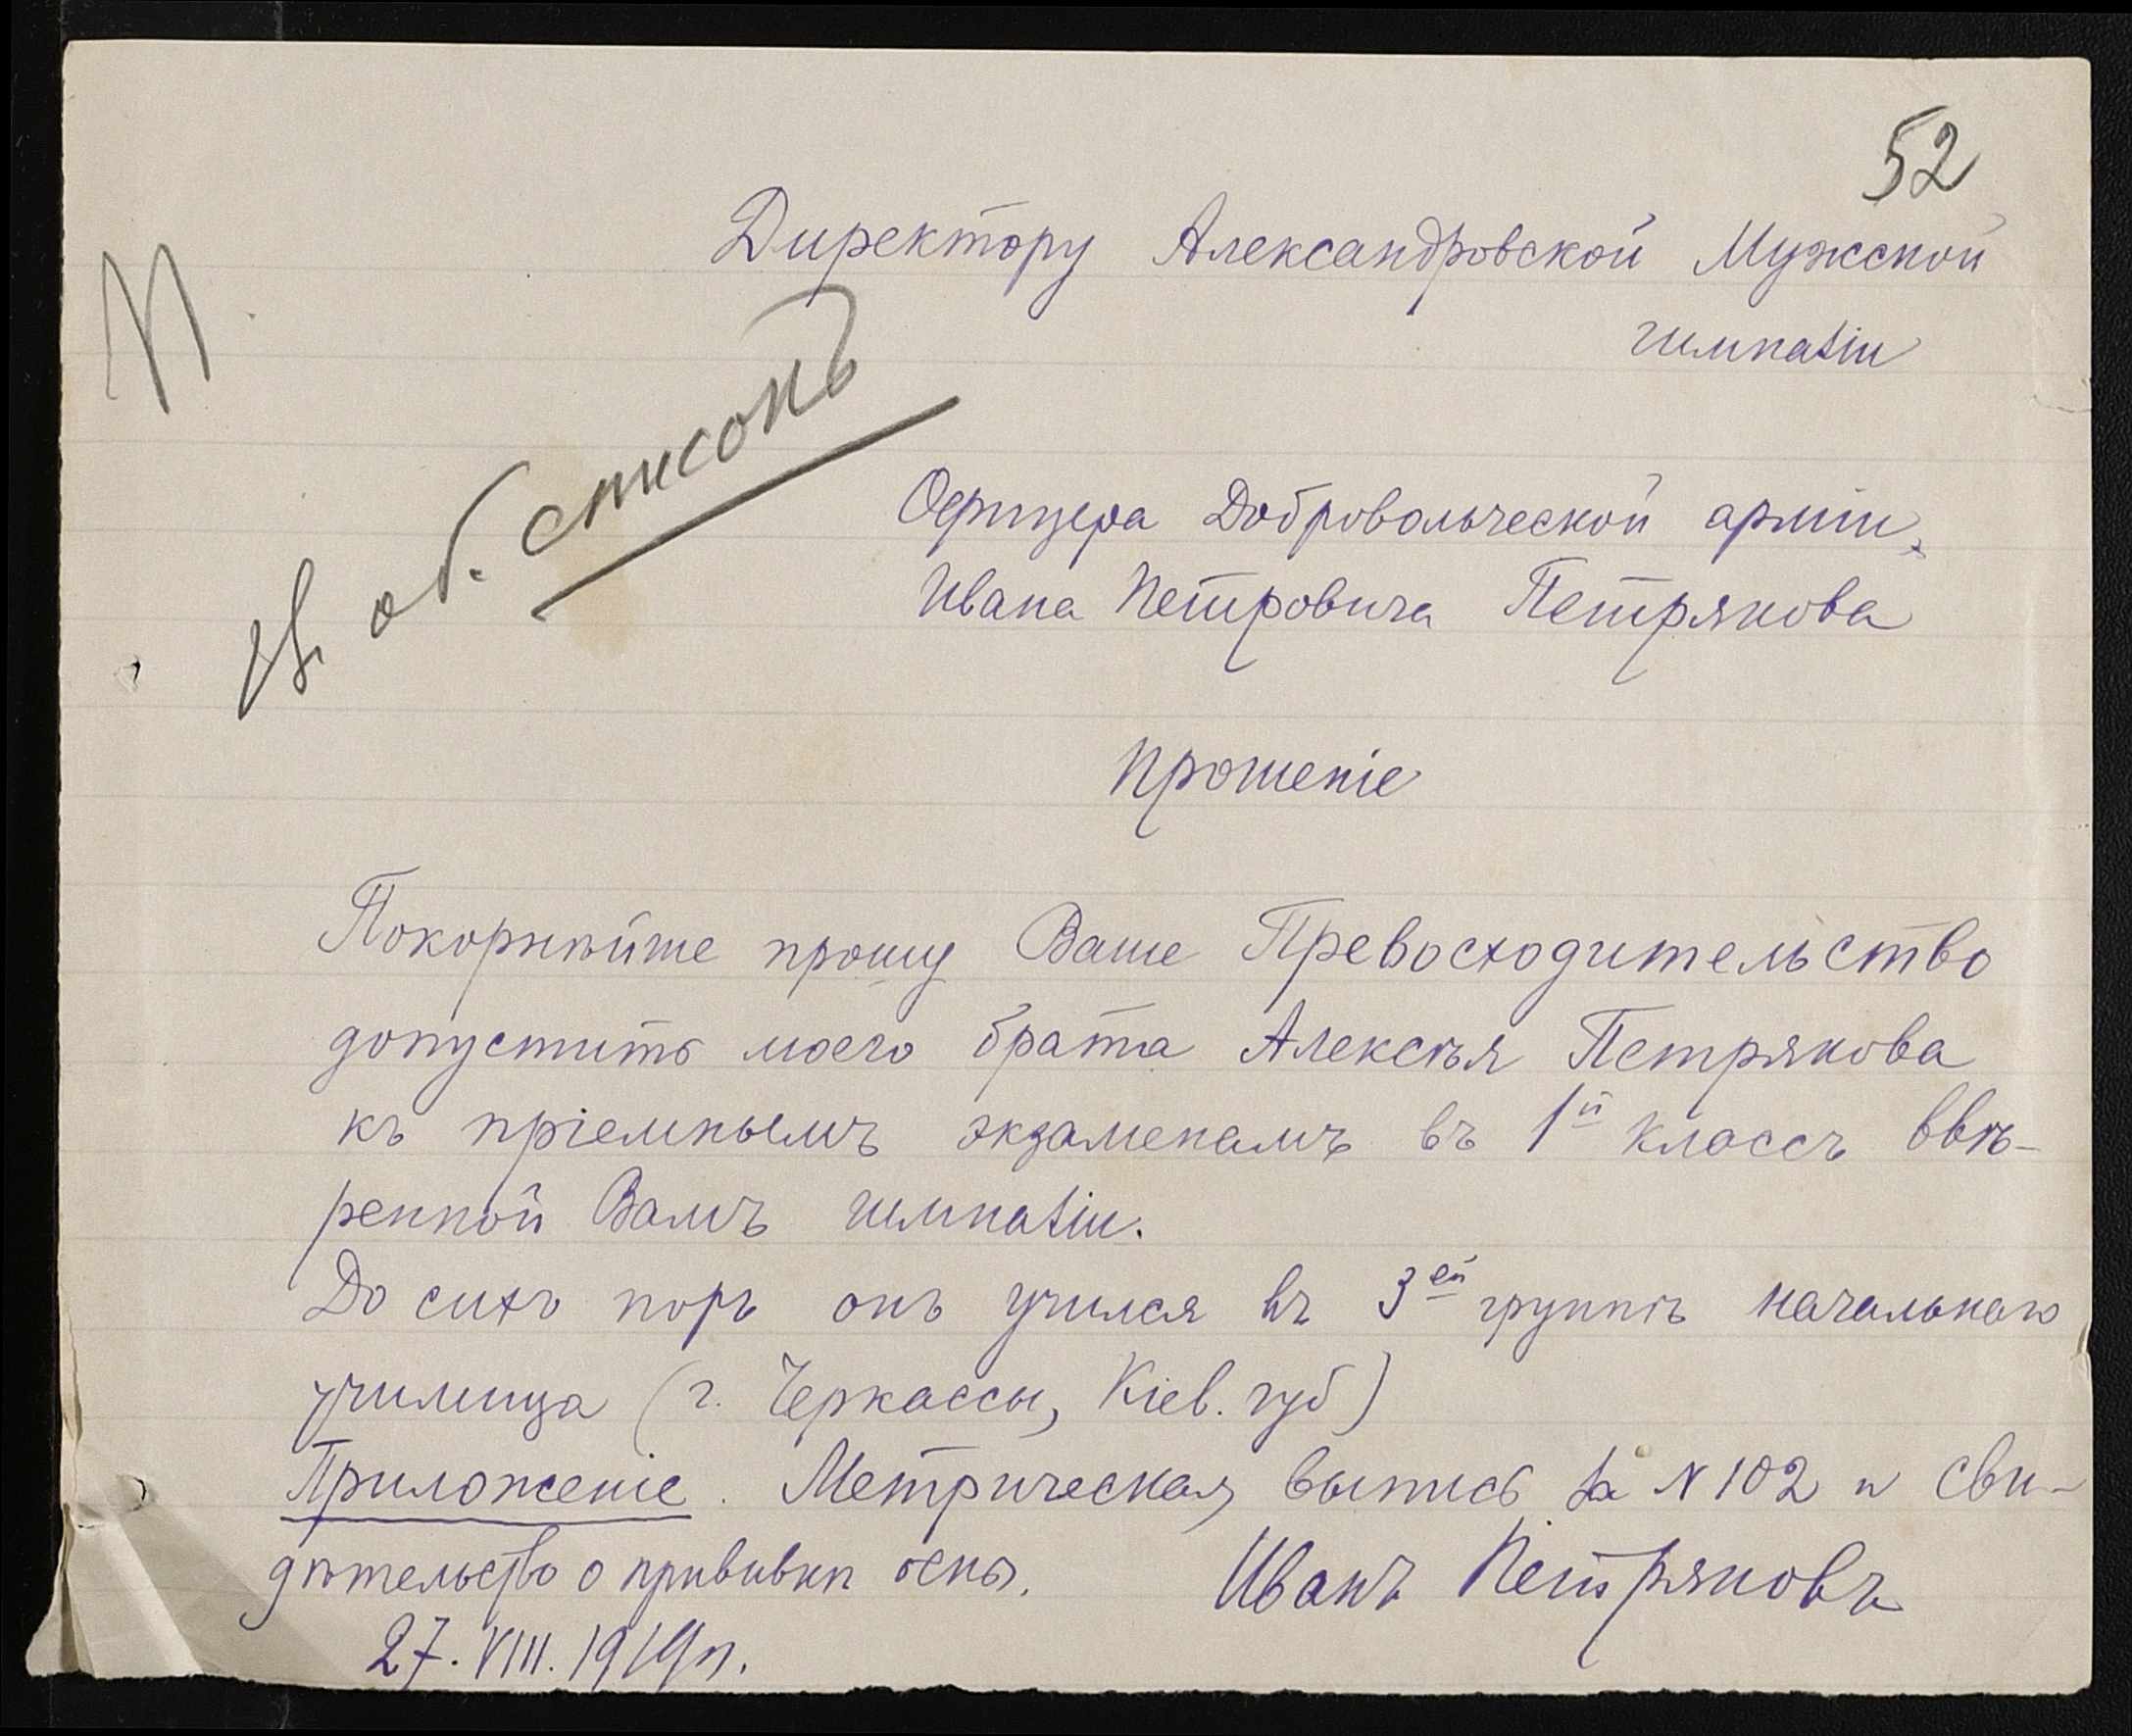 52
Директору Александровской Мужской
гимназіи
П
въ об. списокъ
Офицера Добровольческой арміи,
Ивана Петровича Петрякова
Прошеніе
Покорнѣйше прошу Ваше Превосходительство
допустить моего брата Алексѣя Петрякова
къ пріемнымъ экзаменамъ въ 1й классъ ввѣ-
ренной Вамъ гимназіи.
До сихъ поръ онъ учился въ 3ей группѣ начальнаго
училища (г. Черкассы, Кіев. губ)
Приложеніе. Метрическая выпись за N 102 и сви-
дѣтельство о прививкѣ оспы. Иванъ Петряковъ
27. VIII. 1919 г.